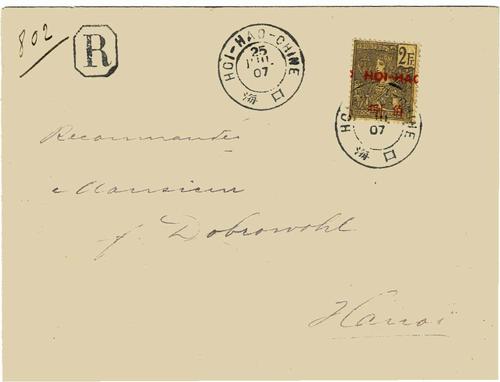 802
R
HOI-HAO-CHINE
25
JUIL.
07
海口
2 Fr
HOI-HAO
HOI-HAO-CHINE
07
海口
Recommandée
Monsieur
f. Dobrowohl
Hanoi